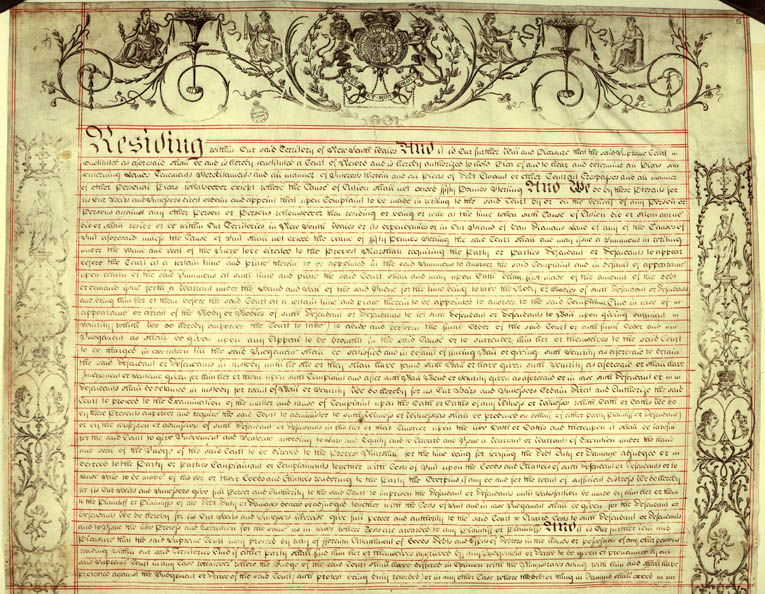 Residing within Our said Territory of New South Wales And it is Our further Will and Pleasure that the said Supreme Court so
constituted as aforesaid shall be and is hereby constituted a Court of Record and is hereby authorized to hold Plea of and to hear and determine all Pleas
concerning Lands Tenements Hereditaments and all manner of Interests therein and all Pleas of Debt Account or other Contract Trespasses and all manner
of other Personal Pleas whatsoever except where the Cause of Action shall not exceed fifty Pounds Sterling And We do by these Presents for
Us Our Heirs and Successors direct ordain and appoint that upon Complaint to be made in writing to the said Court by or on the behalf of any Person or
Persons against any other Person or Persons whomsoever then residing or being or who at the time when such Cause of Action did or shall accrue
did or shall reside or be within Our Territories in New South Wales or its dependencies or in Our Island of Van Diemans Land of any of the Causes of
Suit aforesaid unless the Cause of Suit shall not exceed the value of fifty Pounds Sterling the said Court shall and may issue a Summons in writing
under the Hand and Seal of the Judge directed to the Provost Marshal requiring the Party or Parties Defendant or Defendants to appear
before the Court at a certain time and place therein to be appointed in the said Summons to answer the said Complaint and in default of appearance
upon return of the said Summons at such time and place the said Court shall and may upon Oath being first made of the amount of the debt
or demand issue forth a Warrant under the Hand and Seal of the said Judge for the time being to take the Body or Bodies of such Defendant or Defendants
and bring him her or them before the said Court at a certain time and place therein to be appointed to answer to the said Complaint and in case of
appearance or arrest of the Body or Bodies of such Defendant or Defendants to let such defendant or defendants to Bail upon giving sufficient
security which We do hereby empower the Court to take to abide and perform the final Order of the said Court or such final Order and
Judgement as shall be given upon any Appeal to be brought in the said Cause or to surrender him her or themselves to the said Court
to be charged in execution till the said Judgement shall be satisfied and in default of finding Bail or giving such Security as aforesaid to detain
the said Defendant or Defendants in custody until he she or they shall have found such Bail or have given such Security as aforesaid or shall have
Judgement or Sentence given for him her or them upon such Complaint and after such Bail Bond or Security given as aforesaid or in case such defendant or
defendants shall be detained in custody for want of Bail or Security We do hereby for Us Our Heirs and Successors Ordain Direct and Authorize the said
Court to proceed to the Examination of the matter and cause of Complaint upon the Oath or Oaths of any Witness or Witnesses which Oath or Oaths We do
by these Presents empower and require the said Court to administer to such Witness or Witnesses as shall be produced on behalf of either party Plaintiff or Defendant
or by the confession or admission of such Defendant or Defendants in his her or their Answer upon the like Oath or Oaths and thereupon it shall be lawful
for the said Court to give Judgement and Sentence according to Law and Equity and to award and issue a Warrant or Warrants of Execution under the Hand
and Seal of the Judge of the said Court to be directed to the Provost Marshal for the time being for levying the Debt Duty or Damages adjudged or
decreed to the Party or Parties Complainant or Complainants together with Costs of Suit upon the Goods and Chattels of such Defendant or Defendants or to
cause Sale to be made of his her or their Goods and Chattels rendering to the Party the Overplus if any be and for the want of sufficient distress We do hereby
for Us Our Heirs and Successors give full Power and Authority to the said Court to imprison the Defendant or Defendants until satisfaction be made by him her or them
to the Plaintiff or Plaintiffs of the Debt Duty or Damages decreed or adjudged together with the Costs of Suit and in case Judgement shall be given for the Defendant or
Defendants We do hereby for Us Our Heirs and Successors likewise give full power and authority to the said Court to award Costs to such Defendant or Defendants
and to issue the like Process and Execution for the same as in cases where Costs are awarded to any Plaintiff or Plaintiffs And it is Our further Will and
Pleasure that the said Supreme Court may proceed by way of foreign Attachment of Goods Debts and Effects of Debtors in the hands or possession of any other persons
residing within our said Territories And if either party shall find him her or themselves aggrieved by any Judgement or decree to be given or pronounced by our
said Supreme Court in any case whatsoever where the Judge of the said Court shall have differed in Opinion with the Magistrates sitting with him and shall have
protested against the Judgement or Decree of the said Court such protest being duly recorded or in any other Case where the debt or thing in Demand shall exceed in